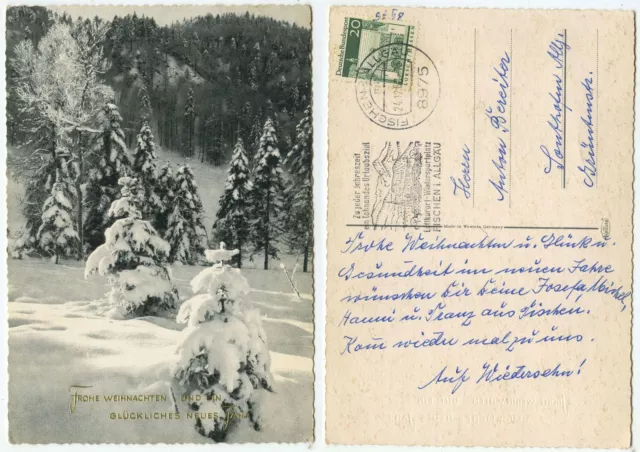 FROHE WEIHNACHTEN UND EIN
GLÜCKLICHES NEUES JAHR
Deutsche Bundespost
20
8975
FISCHEN
Zu jeder Jahreszeit
ein lohnendes Urlaubsziel
Luftkurort-Wintersportplatz
FISCHEN i. ALLGÄU
Herrn
Anton Bereiter
Sonthofen Allg.
Grüntenstr.
Frohe Weihnachten u. Glück u.
Gesundheit im neuen Jahre
wünschen Dir Deine Josefa, Michel,
Hanni u. Franz aus Fischen.
Kom wieder mal zu uns.
Auf Wiedersehn!